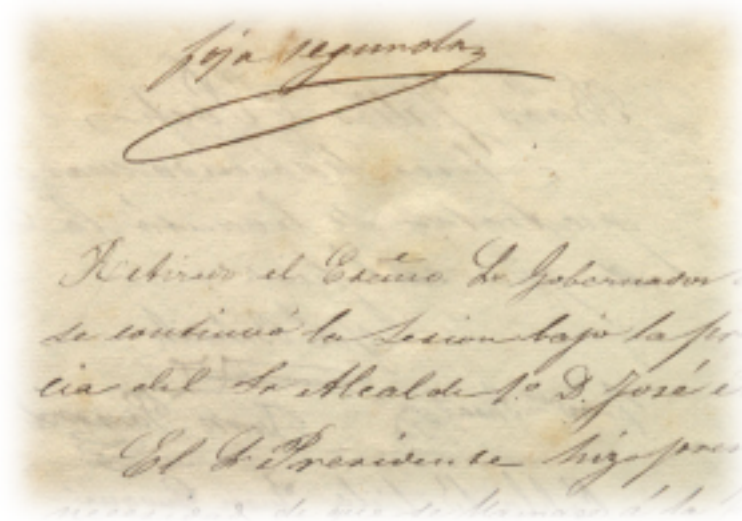 foja segunda
Retirado el Exc̃mo Sr Gobernador
se continuó la sesion bajo la pre
cia del Sr Alcalde 1.º D. José
El Sr Presidente hizo pres
necesidad de que se